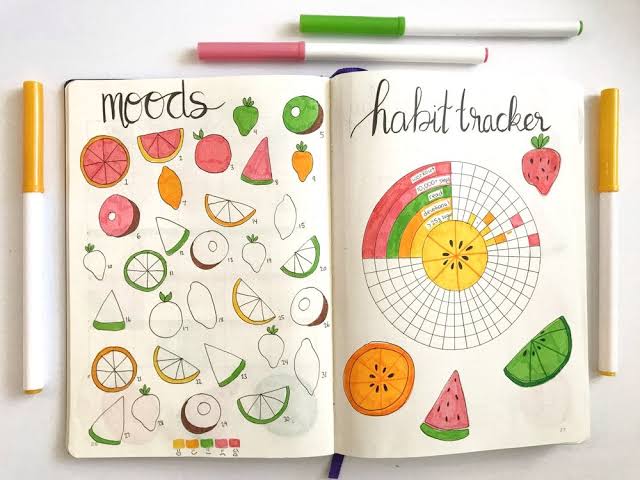 moods
4 5
1 2 3 8 9
7
14 15
6
10 11 13 19 20
16 17 18 25 26
24
21 22 23 31
27 28 29 30
habit tracker
workout
10,000+ steps
read
devotional
27